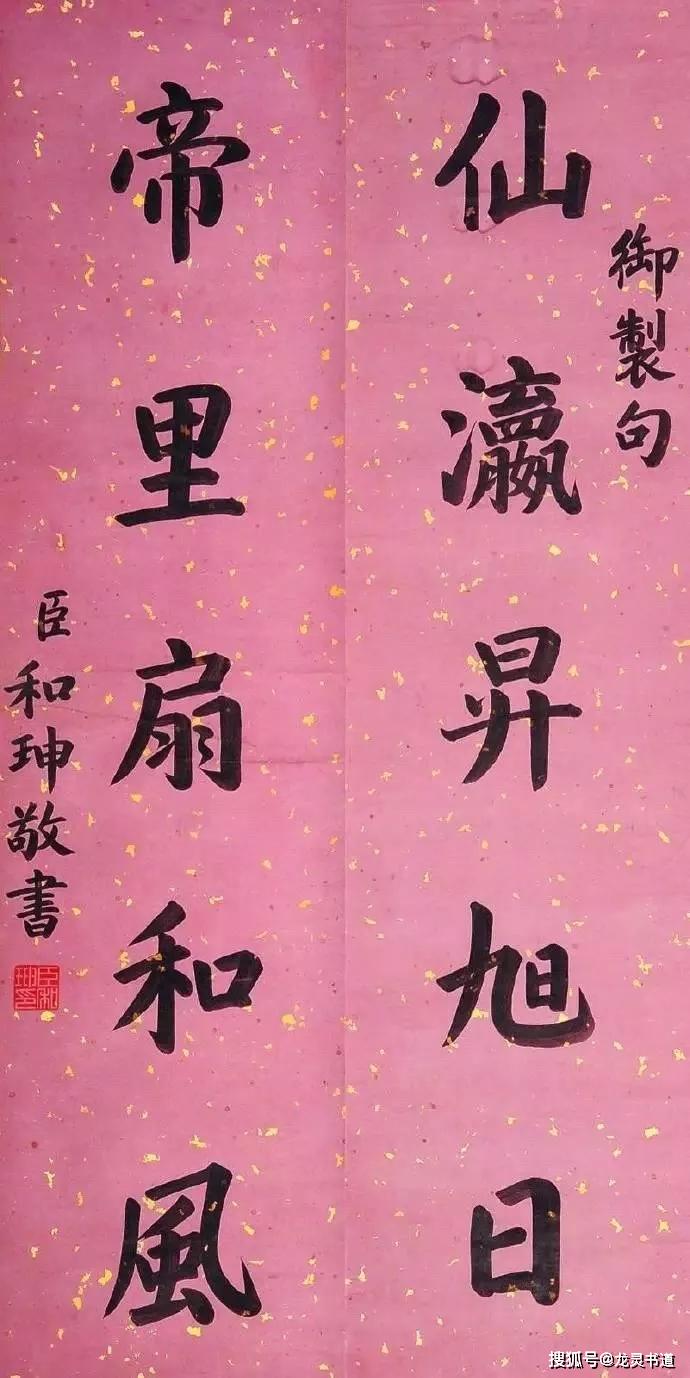 御製句
仙瀛昇旭日
帝里扇和風
臣和珅敬書
臣和珅印
搜狐号@龙灵书道